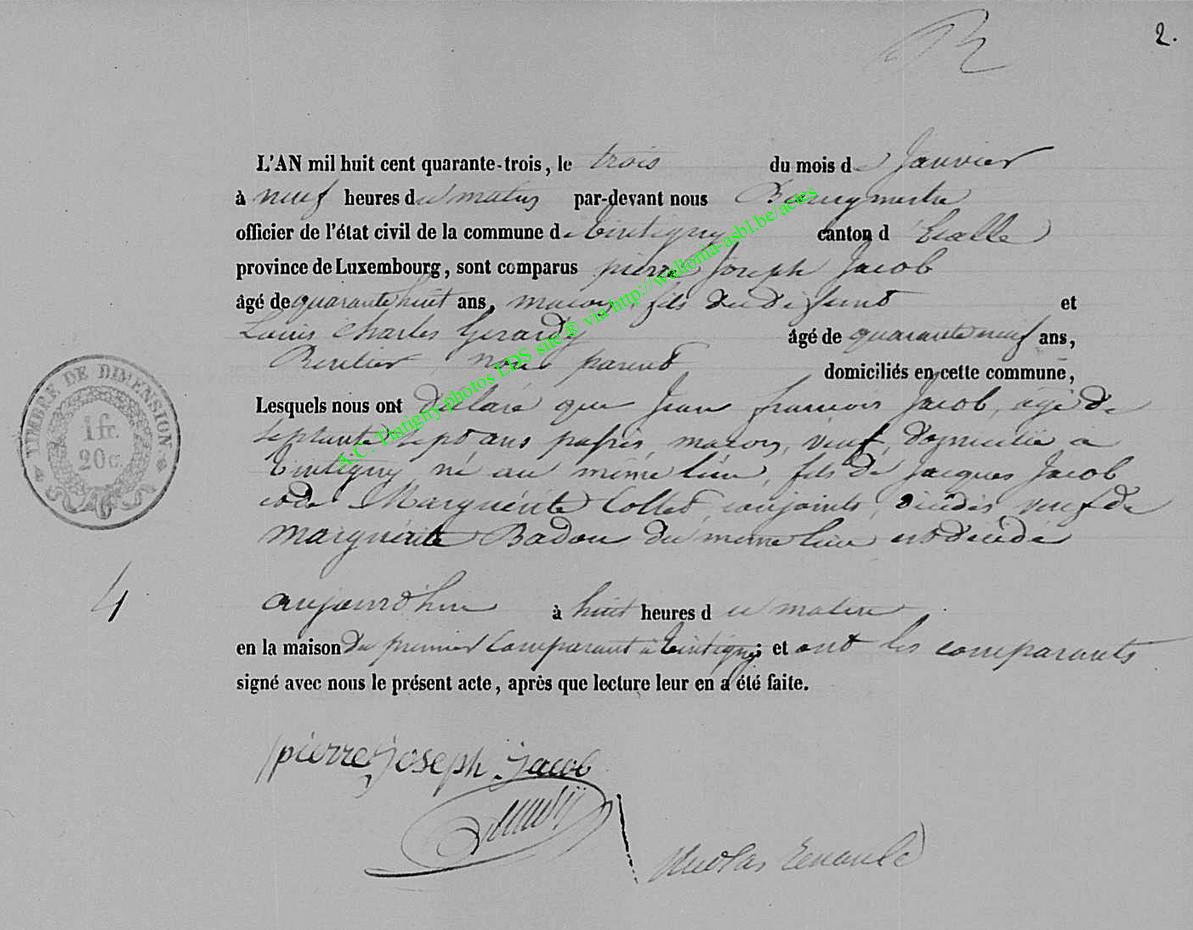 2.
L'AN mil huit cent quarante-trois, le trois du mois de Janvier
à neuf heures du matin par-devant nous Bourgmestre
officier de l'état civil de la commune de Tintigny canton d'Etalle
province de Luxembourg, sont comparus pierre Joseph Jacob
âgé de quarante huit ans, maçon, fils du défunt et
Louis Charles Gerardy âgé de quarante neuf ans,
Rentier, non parent domiciliés en cette commune,
Lesquels nous ont déclaré que Jean francois Jacob, agé de
septante sept ans passés, macon, veuf, domicilié a
Tintigny né au même lieu, fils de Jacques Jacob
et de Marguérite Collet, conjoints, décédés veuf de
Marguérite Badou du même lieu est décédé
4
aujourd'hui à huit heures du matin
en la maison du premier Comparant à Tintigny; et ont les comparants
signé avec nous le présent acte, après que lecture leur en a été faite.
TIMBRE DE DIMENSION
1 fr.
20 c.
pierre Joseph Jacob
Nicolas
A.C. Tintigny photos LDS site ® via http://wallonia-asbl.be/actes